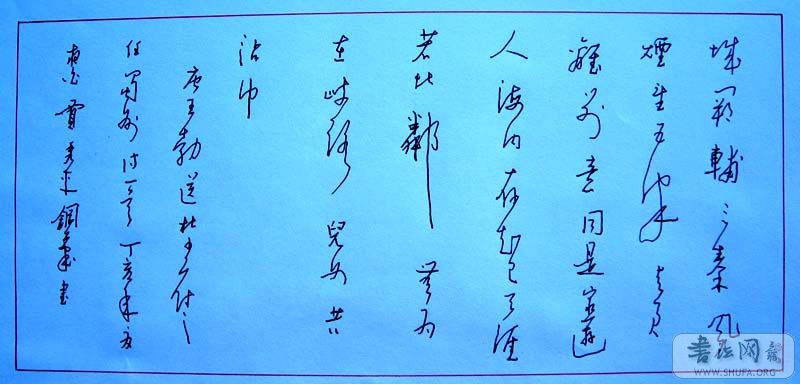 城闕輔三秦風
煙望五津与君
離別意同是宦遊
人海内存知己天涯
若比鄰無為
在岐路兒女共
沾巾
唐王勃送杜少府之
任蜀州詩一首丁亥年
鋼筆書
書法网
WWW.SHUFA.ORG